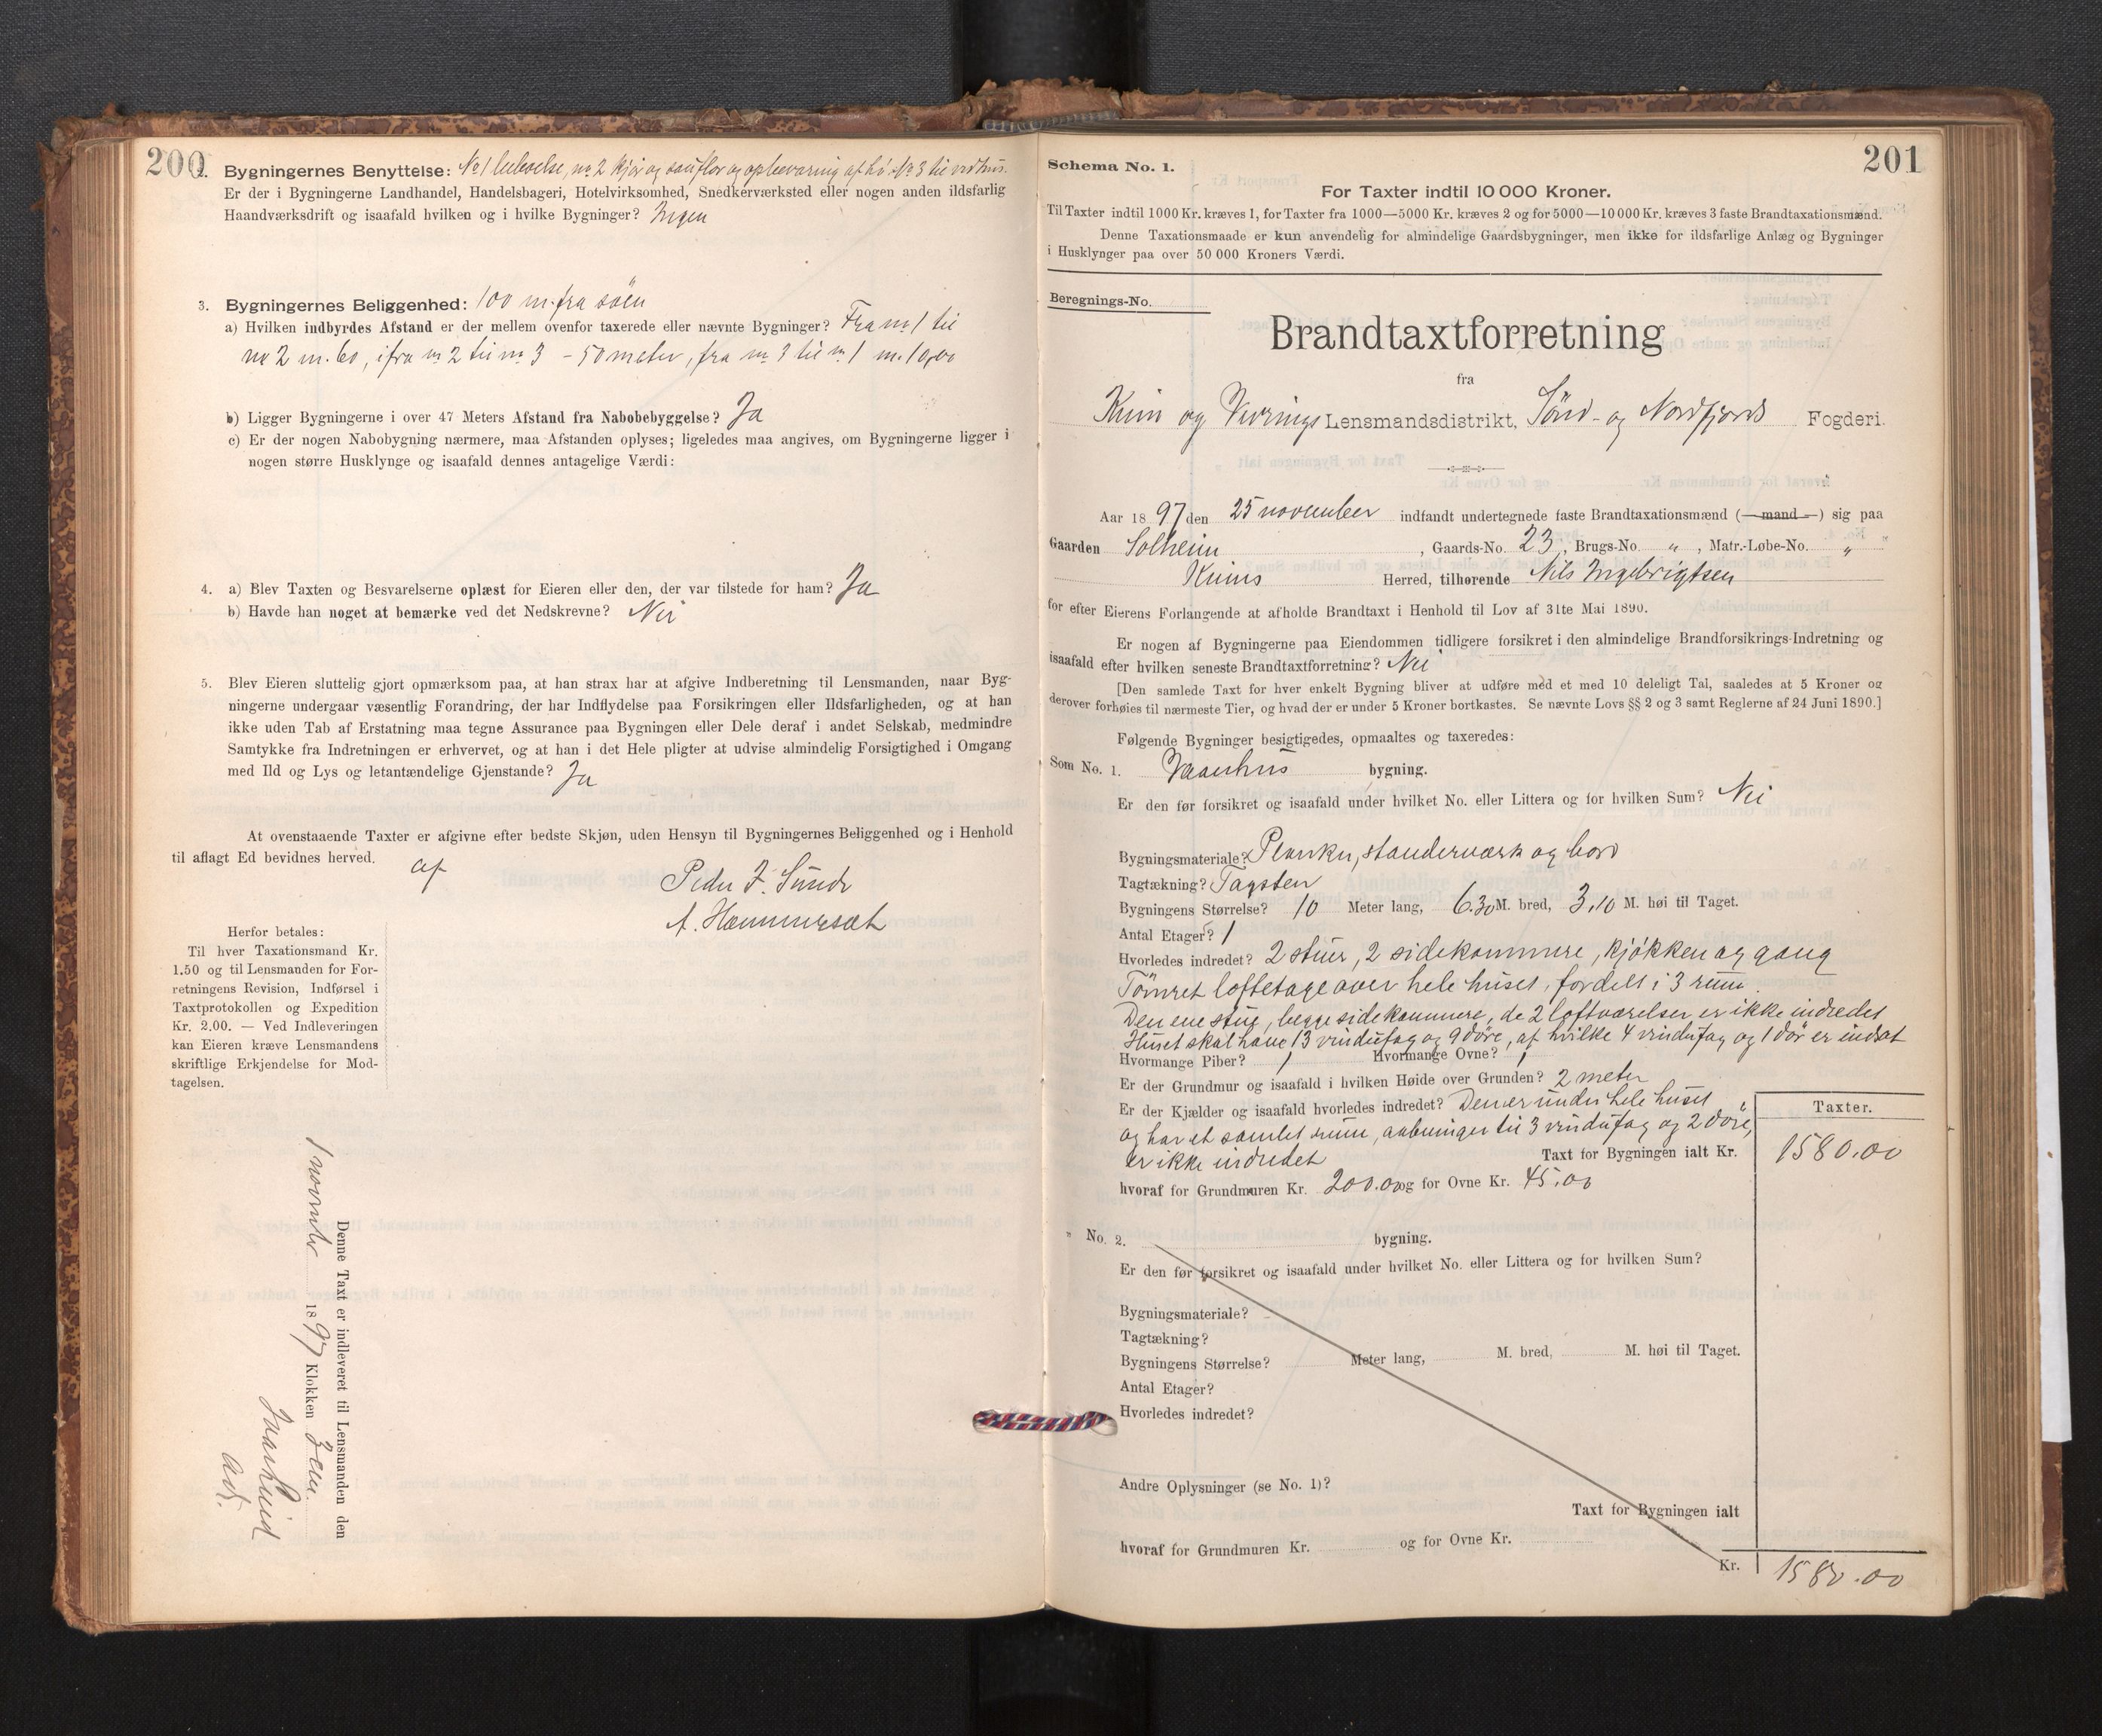 200
2. Bygningernes Benyttelse: No 1 beboelse, no 2 kjør og saufløs og opbevaring af hø. No 3 til vedhus.
Er der i Bygningerne Landhandel, Handelsbageri, Hotelvirksomhed, Snedkerværksted eller nogen anden ildsfarlig
Haandværksdrift og isaafald hvilken og i hvilke Bygninger? Ingen
3. Bygningernes Beliggenhed: 100 m. fra søen
a) Hvilken indbyrdes Afstand er der mellem ovenfor taxerede eller nævnte Bygninger? Fra no 1 til
no 2 m. 60, ifra no 2 til no 3 - 50 meter, fra no 3 til no 1 m. 10,00
b) Ligger Bygningerne i over 47 Meters Afstand fra Nabobebyggelse? Ja
c) Er der nogen Nabobygning nærmere, maa Afstanden oplyses; ligeledes maa angives, om Bygningerne ligger i
nogen større Husklynge og isaafald dennes antagelige Værdi:
4. a) Blev Taxten og Besvarelserne oplæst for Eieren eller den, der var tilstede for ham? Ja
b) Havde han noget at bemærke ved det Nedskrevne? Nei
5. Blev Eieren sluttelig gjort opmærksom paa, at han strax har at afgive Indberetning til Lensmanden, naar Byg-
ningerne undergaar væsentlig Forandring, der har Indflydelse paa Forsikringen eller Ildsfarligheden, og at han
ikke uden Tab af Erstatning maa tegne Assurance paa Bygningen eller Dele deraf i andet Selskab, medmindre
Samtykke fra Indretningen er erhvervet, og at han i det Hele pligter at udvise almindelig Forsigtighed i Omgang
med Ild og Lys og letantændelige Gjenstande? Ja
At ovenstaaende Taxter er afgivne efter bedste Skjøn, uden Hensyn til Bygningernes Beliggenhed og i Henhold
til aflagt Ed bevidnes herved.
af
Peder F. Sunde
A. Hammersæt
Herfor betales:
Til hver Taxationsmand Kr.
1.50 og til Lensmanden for For-
retningens Revision, Indførsel i
Taxtprotokollen og Expedition
Kr. 2.00. — Ved Indleveringen
kan Eieren kræve Lensmandens
skriftlige Erkjendelse for Mod-
tagelsen.
Denne Taxt er indleveret til Lensmanden den
1 november 1897 Klokken 3 em.
adj.
201
Schema No. 1.
For Taxter indtil 10 000 Kroner.
Til Taxter indtil 1000 Kr. kræves 1, for Taxter fra 1000—5000 Kr. kræves 2 og for 5000—10 000 Kr. kræves 3 faste Brandtaxationsmænd.
Denne Taxationsmaade er kun anvendelig for almindelige Gaardsbygninger, men ikke for ildsfarlige Anlæg og Bygninger
i Husklynger paa over 50 000 Kroners Værdi.
Beregnings-No.
Brandtaxtforretning
fra
Kinn og Vevrings Lensmandsdistrikt, Sønd- og Nordfjords Fogderi.
Aar 1897 den 25 november indfandt undertegnede faste Brandtaxationsmænd (—mand—) sig paa
Gaarden Solheim, Gaards-No. 23, Brugs-No. „ , Matr.-Løbe-No. „
Kinns Herred, tilhørende Nils Ingebrigtsen
for efter Eierens Forlangende at afholde Brandtaxt i Henhold til Lov af 31te Mai 1890.
Er nogen af Bygningerne paa Eiendommen tidligere forsikret i den almindelige Brandforsikrings-Indretning og
isaafald efter hvilken seneste Brandtaxtforretning? Nei
[Den samlede Taxt for hver enkelt Bygning bliver at udføre med et med 10 deleligt Tal, saaledes at 5 Kroner og
derover forhøies til nærmeste Tier, og hvad der er under 5 Kroner bortkastes. Se nævnte Lovs §§ 2 og 3 samt Reglerne af 24 Juni 1890.]
Følgende Bygninger besigtigedes, opmaaltes og taxeredes:
Som No. 1. Vaanhus bygning.
Er den før forsikret og isaafald under hvilket No. eller Littera og for hvilken Sum? Nei
Bygningsmateriale? Planker, standerværk og bord
Tagtækning? Tagsten
Bygningens Størrelse? 10 Meter lang, 6.30 M. bred, 3,10 M. høi til Taget.
Antal Etager? 1
Hvorledes indredet? 2 stuer, 2 sidekammere, kjøkken og gang
Tømret loftetage over hele huset, fordelt i 3 rum.
Den ene stue, begge sidekammere, de 2 loftværelser er ikke indredet
Huset skal have 13 vindufag og 9 døre, af hvilke 4 vindufag og 1 dør er indsat
Hvormange Piber? 1 Hvormange Ovne? 1
Er der Grundmur og isaafald i hvilken Høide over Grunden? 2 meter
Er der Kjælder og isaafald hvorledes indredet? Den er under hele huset
og har et samlet rum, aabninger til 3 vindufag og 2 døre,
er ikke indredet
Taxter.
Taxt for Bygningen ialt Kr. 1580.00
hvoraf for Grundmuren Kr. 200.00 og for Ovne Kr. 45.00
" No. 2. bygning.
Er den før forsikret og isaafald under hvilket No. eller Littera og for hvilken Sum?
Bygningsmateriale?
Tagtækning?
Bygningens Størrelse? Meter lang, M. bred, M. høi til Taget.
Antal Etager?
Hvorledes indredet?
Andre Oplysninger (se No. 1)?
Taxt for Bygningen ialt
hvoraf for Grundmuren Kr. og for Ovne Kr.
Kr. 1580.00